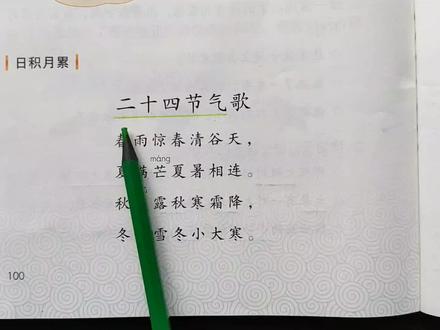 日积月累
二十四节气歌
春雨惊春清谷天，
máng
夏满芒夏暑相连。
秋露秋寒霜降，
冬雪冬小大寒。
100